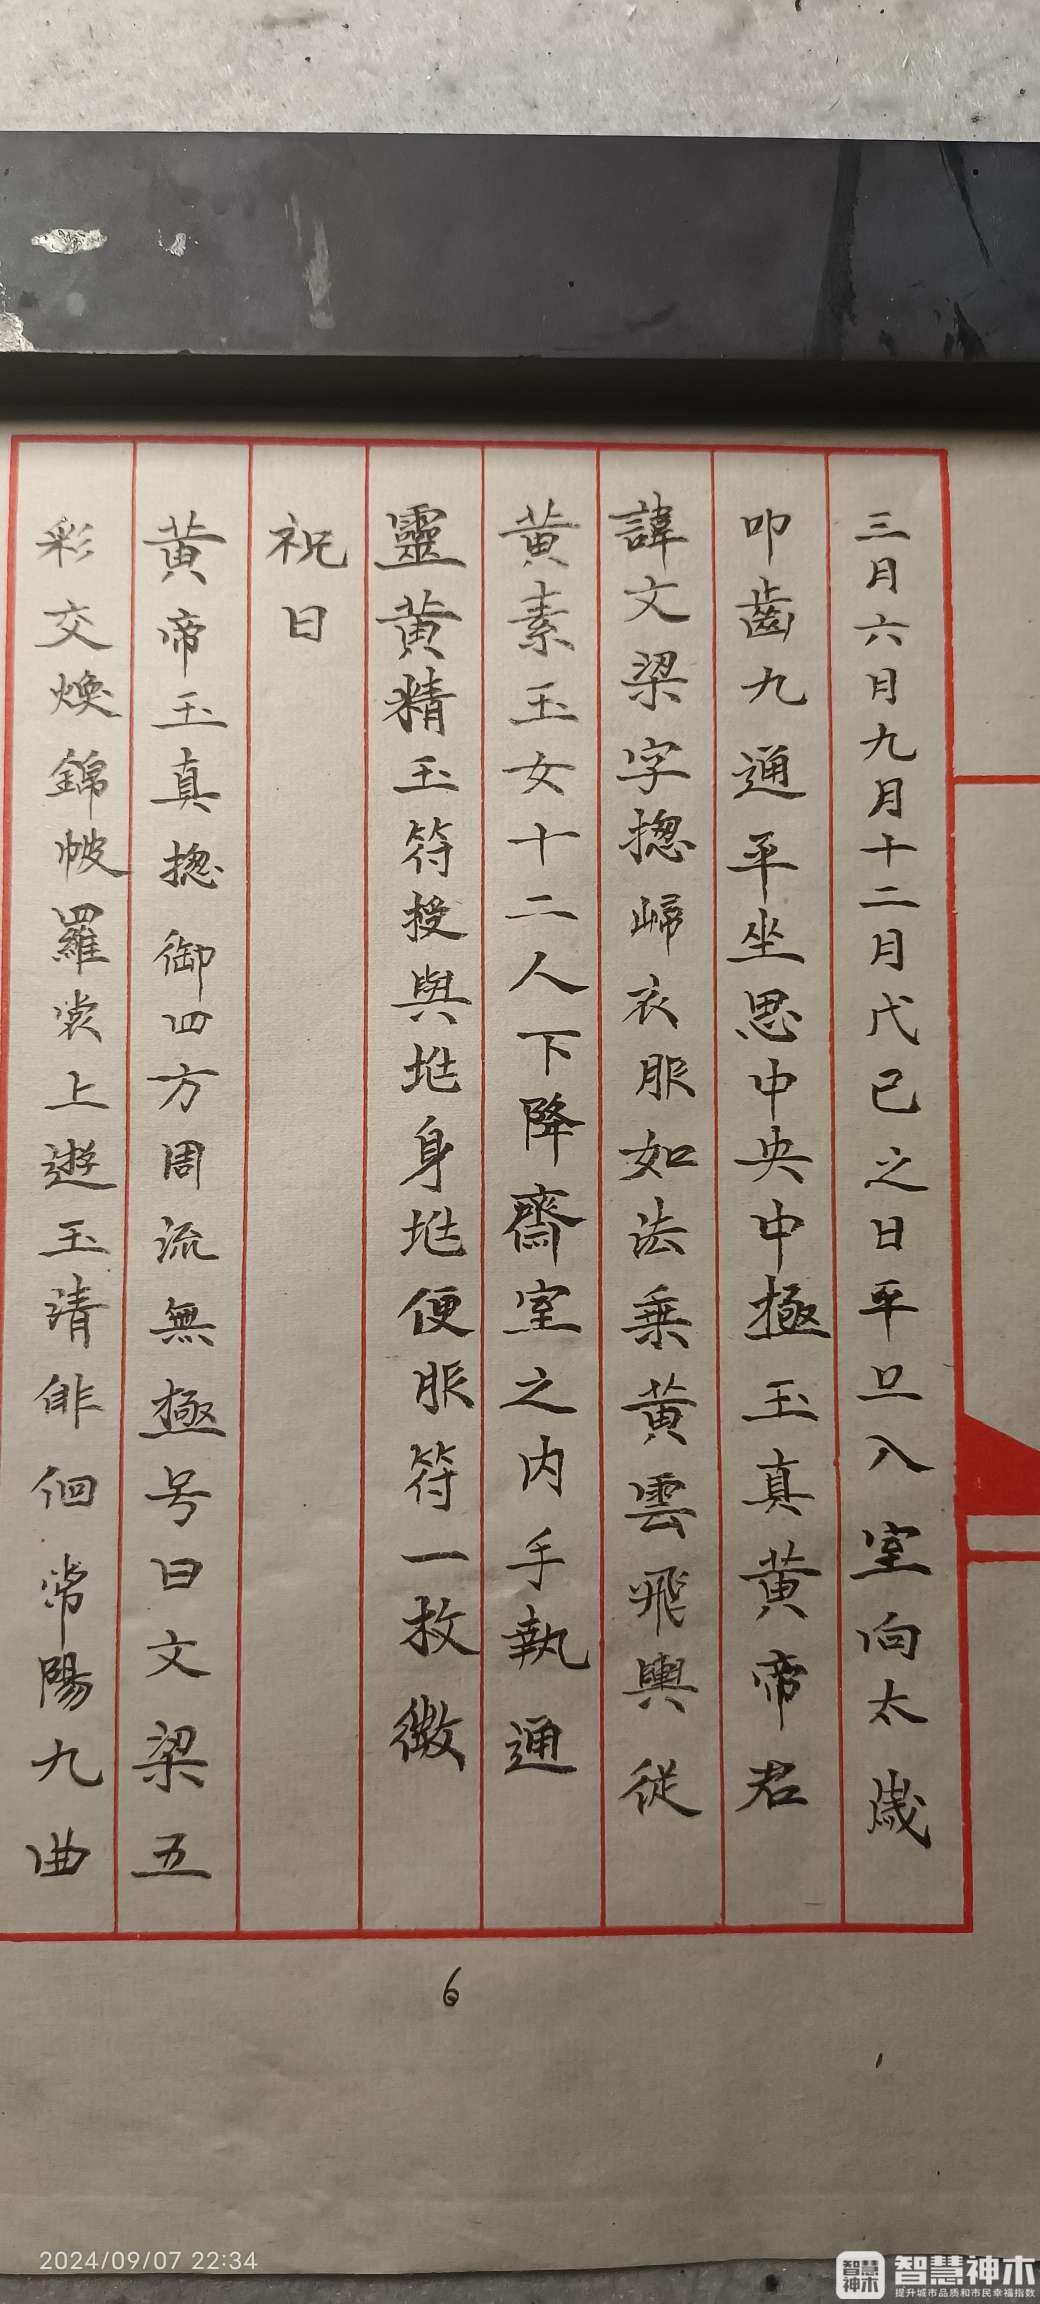 三月六月九月十二月戊己之日平旦入室向太歲
叩齒九通平坐思中央中極玉真黃帝君
諱文梁字揔歸衣服如法乗黄雲飛輿従
黄素玉女十二人下降齋室之内手執通
靈黄精玉符授與兆身兆便服符一枚微
祝曰
黄帝玉真揔御四方周流無極号曰文梁五
彩交煥錦帔羅裳上遊玉清俳徊常陽九曲
6
2024/09/07 22:34
智慧神木
智慧神木
提升城市品质和市民幸福指数